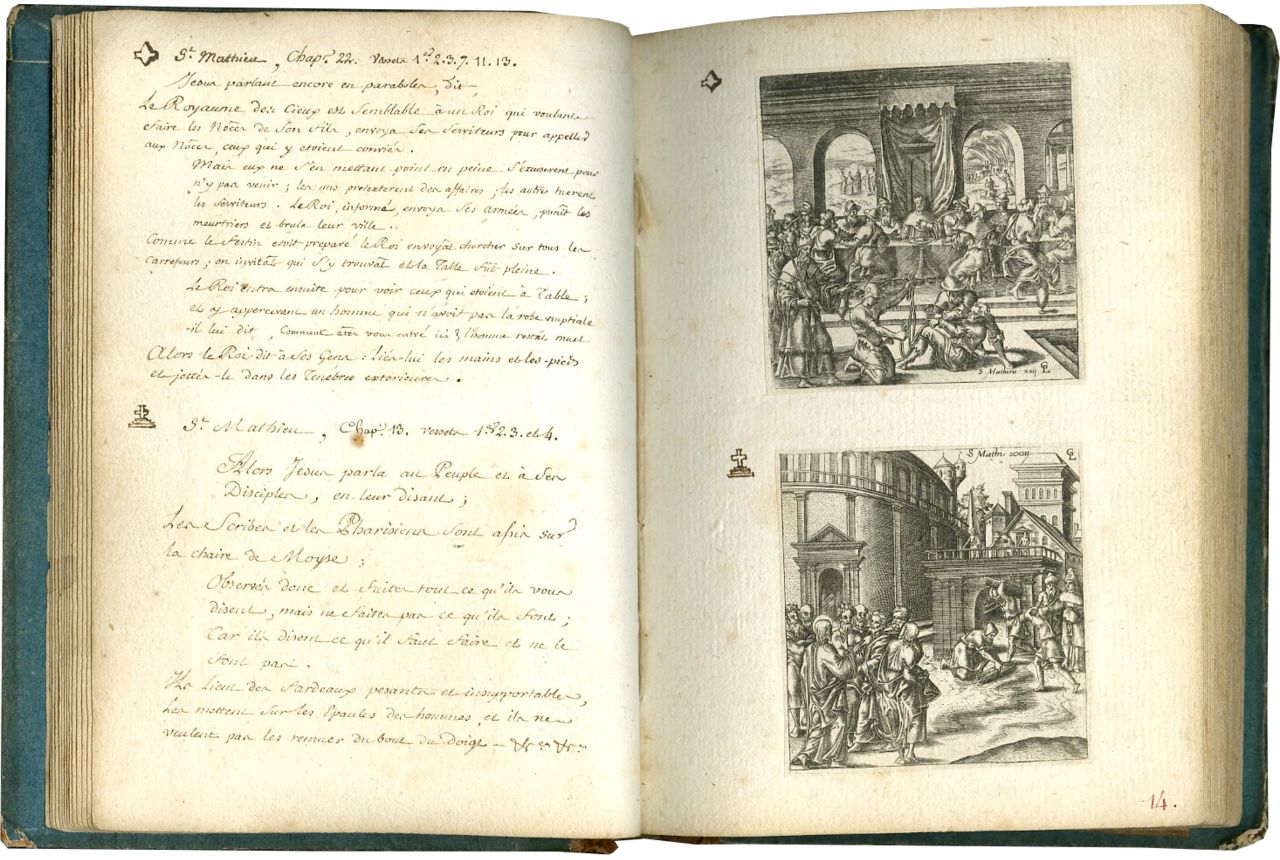 St. Mathieu, Chapre. 22. Versets 1er. 2. 3. 7. 11. 13.
Jesus parlant encore en paraboles, dit,
Le Royaume des Cieux est Semblable à un Roi qui voulant
faire les Nôces de Son fils, envoya Ses Serviteurs pour appeller
aux Nôces, ceux qui y etoient conviés.
Mais eux ne S'en mettant point en peine S'excuserent pour
n'y pas venir; les uns pretexterent des affaires, les autres tuerent
les Serviteurs. Le Roi, informé, envoya Ses Armées, punît les
meurtriers et brula leur ville.
Comme le festin etoit preparé le Roi envoyât chercher sur tous les
carrefours; on invitât qui S'y trouvât et la Table fût pleine.
Le Roi entra ensuite pour voir ceux qui etoient à Table;
et y appercevant un homme qui n'avoit pas la robe nuptiale
il lui dit, Comment êtes vous entré ici & l'homme restât muet
Alors le Roi dit à Ses Gens: Liés-lui les mains et les pieds
et jettés-le dans les Tenebres exterieures.
St. Mathieu, Chapre. 13. versets 1er. 2. 3. et 4.
Alors Jesus parla au Peuple et à Ses
Disciples, en leur disant;
Les Scribes et les Pharisiens Sont assis sur
la chaire de Moyse;
Observés donc et faites tout ce qu'ils vous
disent, mais ne faites pas ce qu'ils font;
Car ils disent ce qu'il faut faire et ne le
font pas.
Ils lient des fardeaux pesants et insuportables,
Les mettent sur les Epaules des hommes, et ils ne
veulent pas les remuer du bout du doigt
S Mathieu xxij
S Math: xxiii
14.